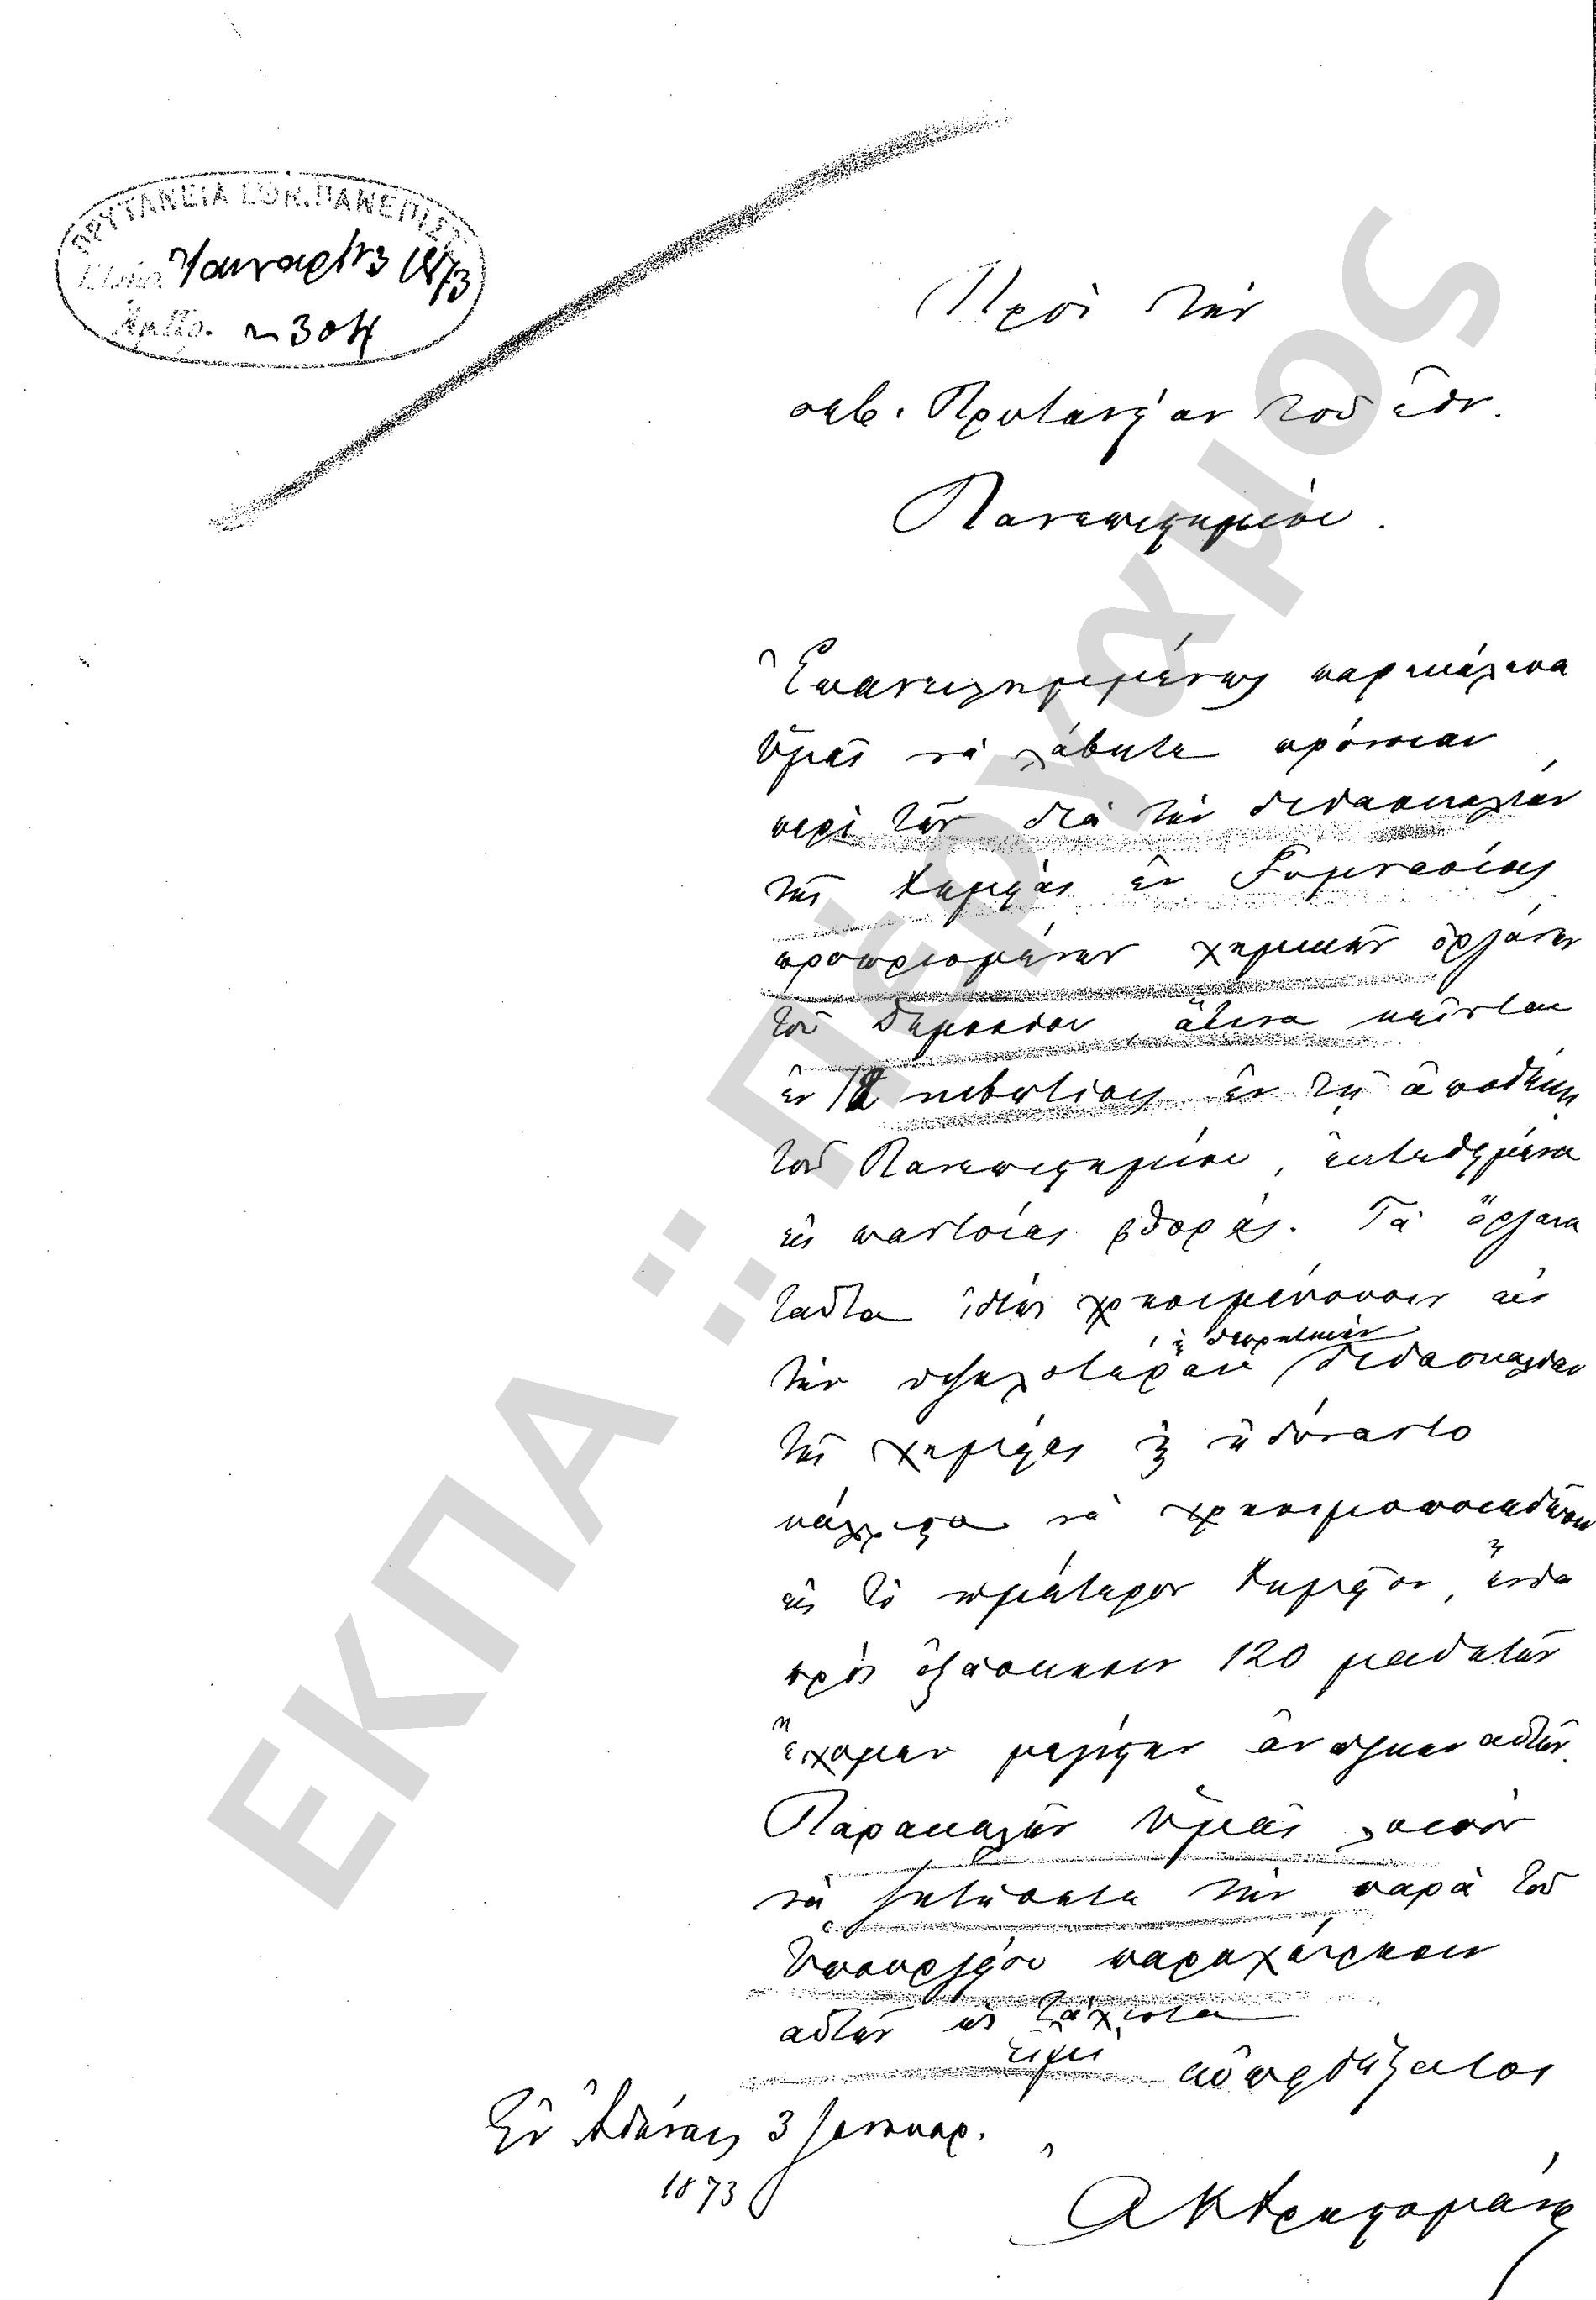 ΠΡΥΤΑΝΕΙΑ ΕΘΝ. ΠΑΝΕΠΙΣΤ
Ἰανναρίου 3 1873
Ἀριθ. 304
Πρὸς τὴν
σεβ. Πρυτανείαν τοῦ ἐθν.
Πανεπιστημίου.
Ἐπανειλημμένως παρεκάλεσα
Ὑμᾶς νὰ λάβητε πρόνοιαν
περὶ τῶν διὰ τὴν διδασκαλίαν
τῆς Χημείας ἐν Γυμνασίοις
προωρισμένων χημικῶν ὀργάνων
τοῦ δημοσίου, ἅτινα κεῖνται
ἐν 12 κιβωτίοις ἐν τῇ ἀποθήκῃ
τοῦ Πανεπιστημίου, ἐκτεθειμένα
εἰς παντοίας φθοράς. Τὰ ὄργανα
ταῦτα ἰδίως χρησιμεύουσιν εἰς
τὴν ὑψηλοτέραν καὶ θεωρητικὴν διδασκαλίαν
τῆς χημείας καὶ ἠδύναντο
κάλλιστα νὰ χρησιμοποιηθῶσιν
εἰς τὸ ἡμέτερον Χημεῖον, ἔνθα
πρὸς ἐξάσκησιν 120 μαθητῶν
ἔχομεν μεγίστην ἀνάγκην αὐτῶν.
Παρακαλῶ Ὑμᾶς λοιπὸν
νὰ ζητήσητε τὴν παρὰ τοῦ
Ὑπουργείου παραχώρησιν
αὐτῶν ὡς τάχιστα
εἰμὶ εὐπειθέστατος
Ἐν Ἀθήναις 3 Ἰανουαρ.
1873
Α Κ Χρηστομάνος
ΕΚΠΑ : Πέργαμος